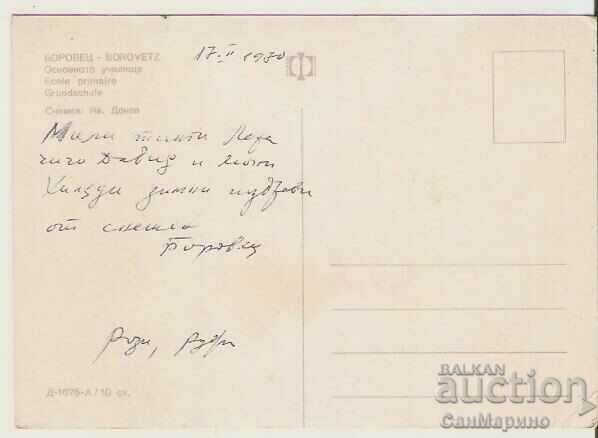 БОРОВЕЦ - BOROVETZ
Основното училище
Ecole primaire
Grundschule
Снимка: Ив. Донов
17-II 1970
Мили танти
чичо Давид и
Хиляди зимни поздрави
от снежна
Боровец
Рози, Руди
Д-1675-А / 10 ст.
BALKAN
auction
СанМарино